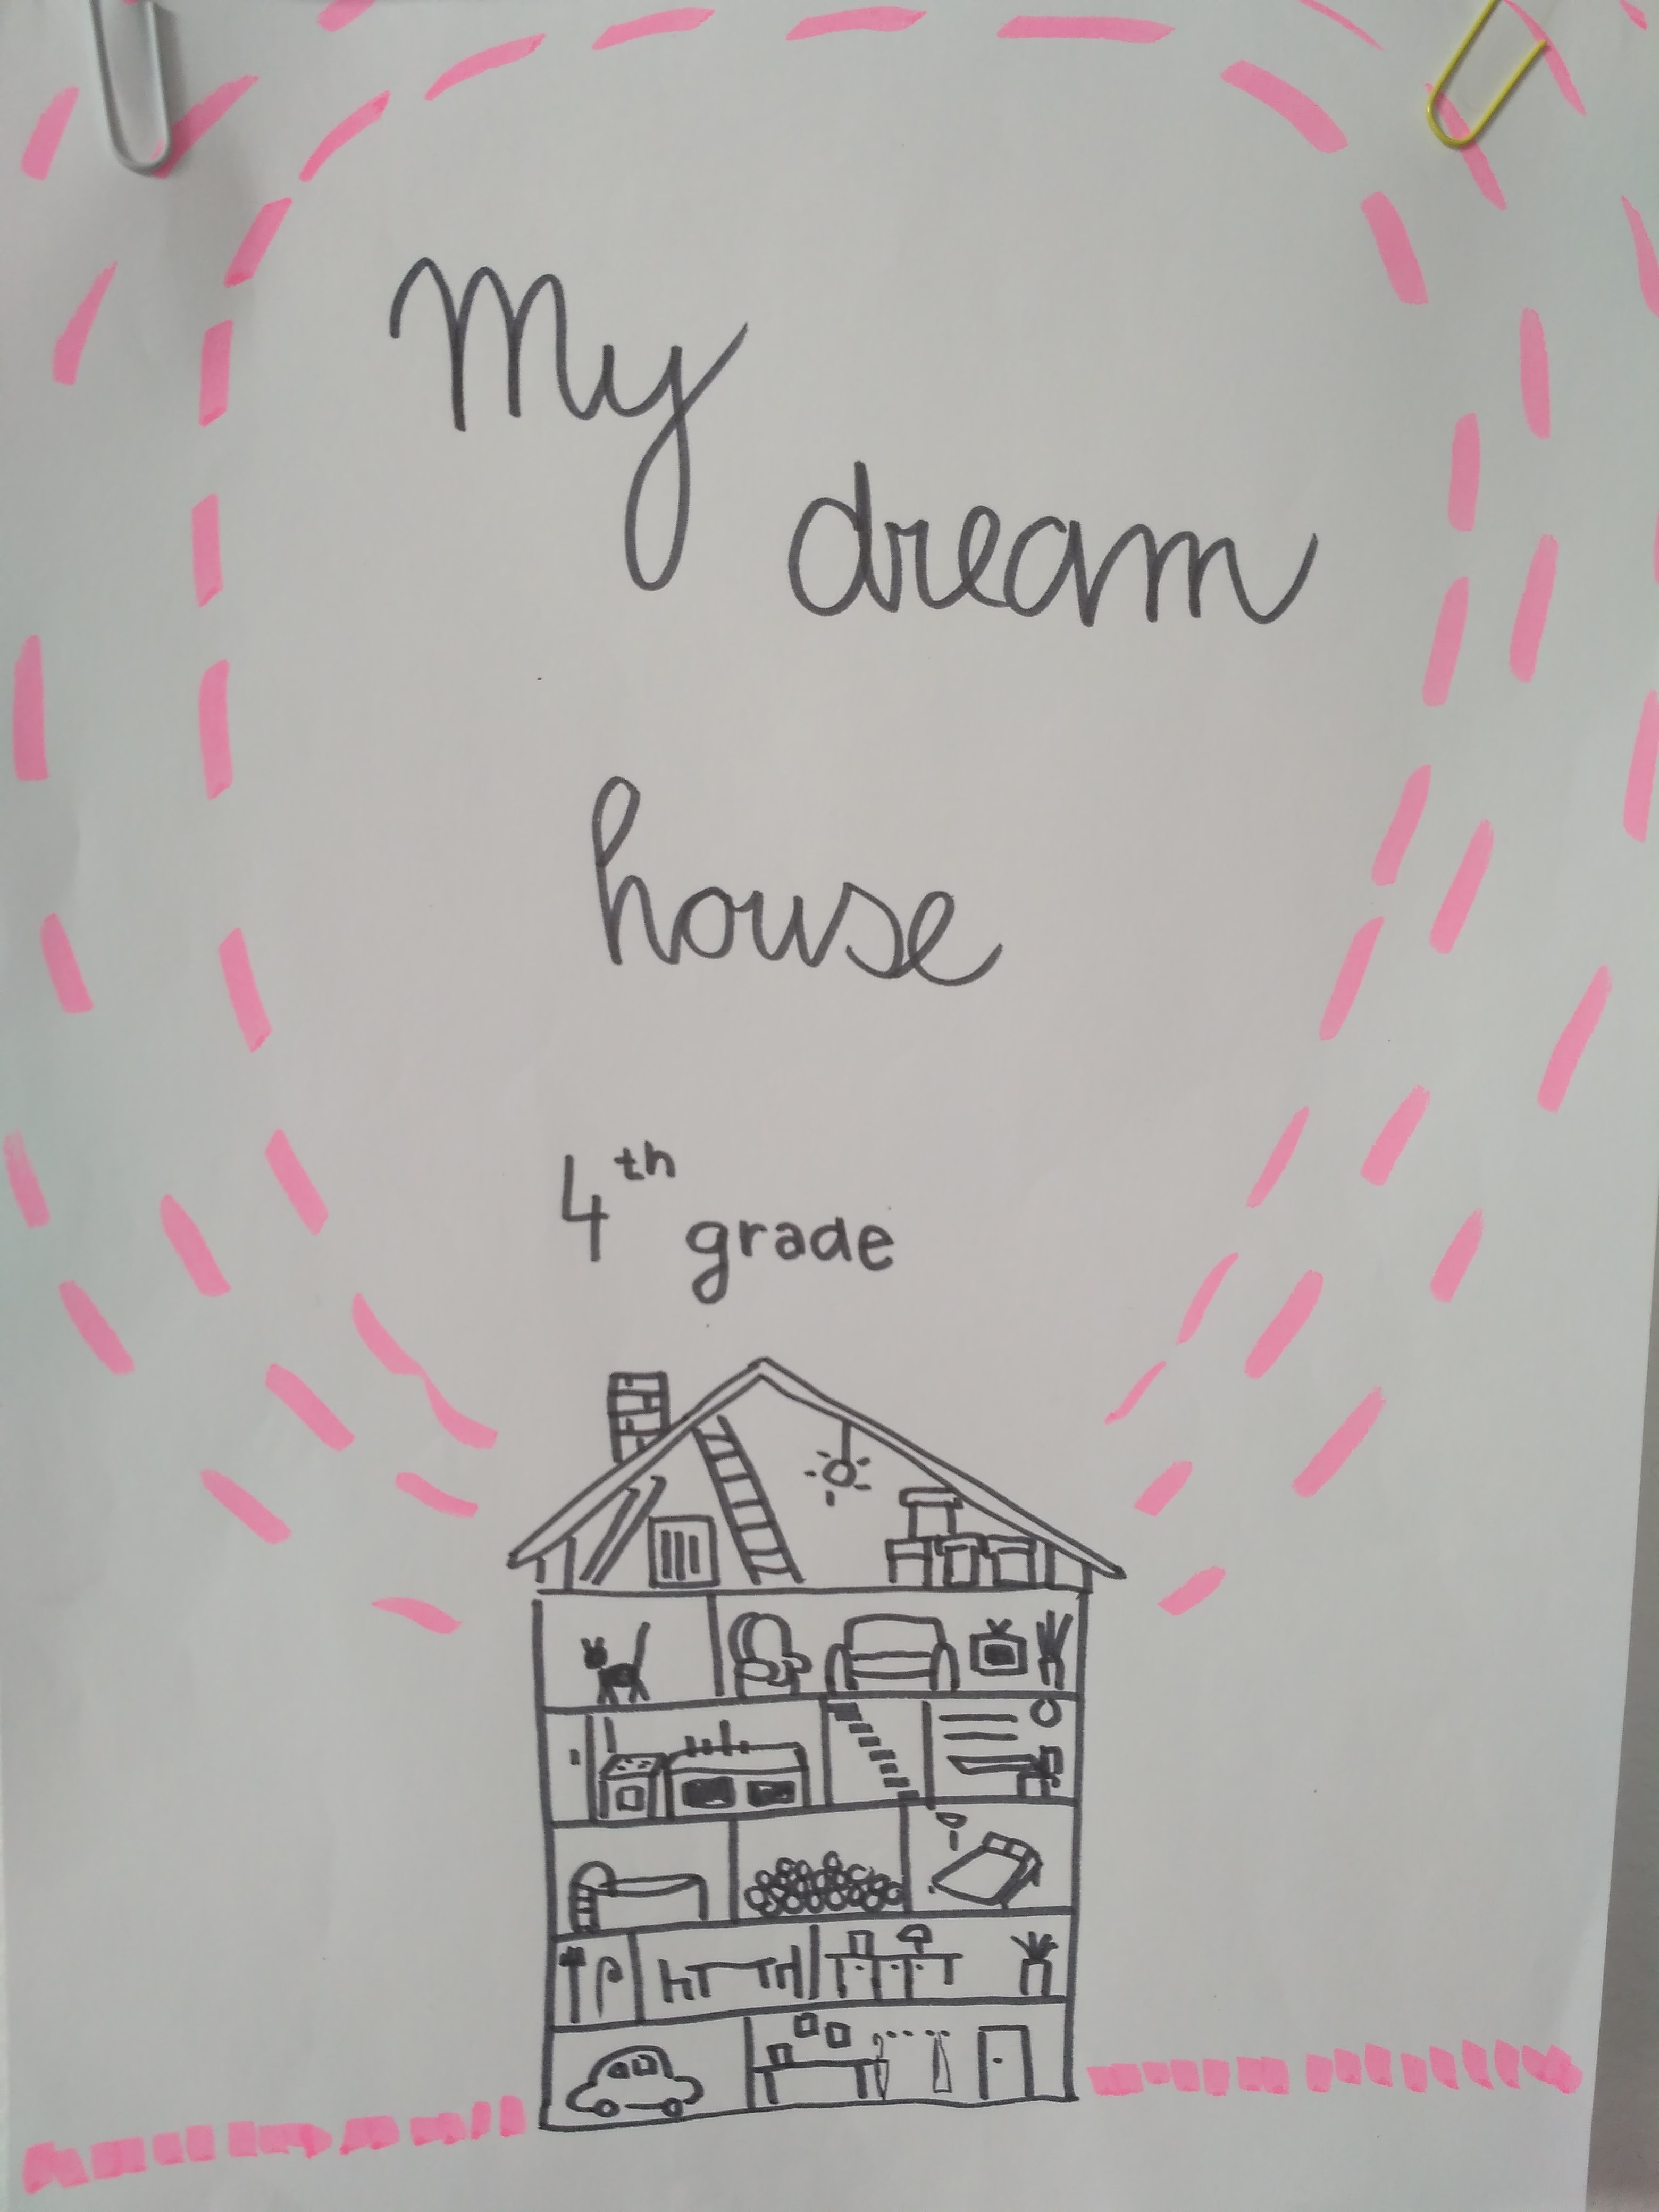 My
dream
house
4th
grade